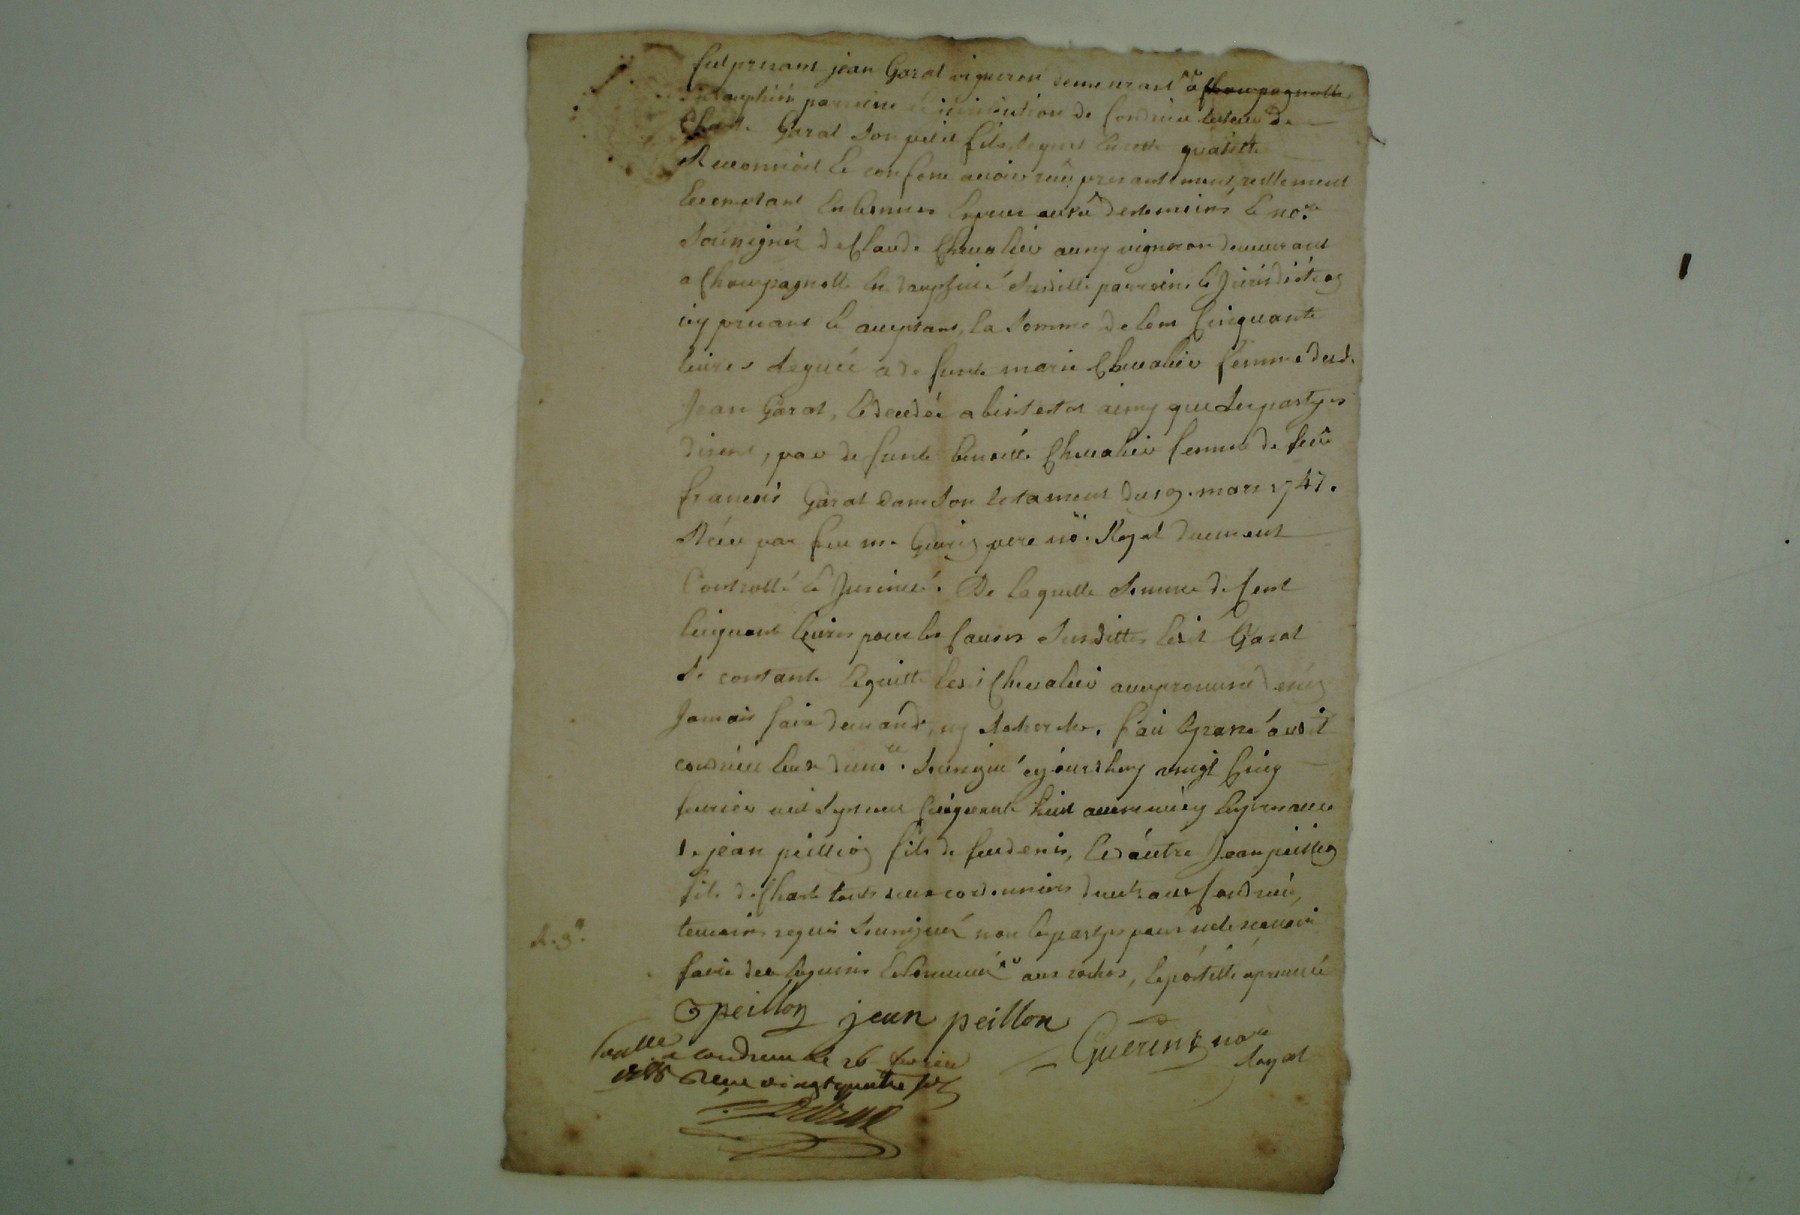 fut presant jean Garat vigneron demeurant a Champagnolle
en dauphiné parroisse et jurisdiction de Condrieu tuteur de
Charle Garat son petit fils, lequel en cette qualitté
Reconnoit et confesse avoir reçu presantement, reellement
et comptant en bonnes especes au vû des temoins et no.re
soussignés de Claude Chevalier aussy vigneron demeurant
a Champagnolle en dauphiné susditte parroisse et Jurisdiction
icy presant et aceptant, la somme de cent cinquante
livres leguée a defunte marie Chevalier femme dud.
Jean Garat, et decedée abintestat ainsy que les partyes
disent, par defunte benoitte Chevalier femme de feu
francois Garat dans son testament du 19. mars 1747.
Receu par feu me Guerin pere no.re Royal duement
Controllé et Jnsinué. De laquelle somme de cent
cinquante livres pour les causes susdittes ledit Garat
se contante et quitte led. Chevalier avec promesse de n'en
Jamais faire demande, ny recherche. fait et passé audit
condrieu etude du no.re soussigné cejourdhuy vingt cinq
fevrier mil sept cent cinquante huit avant midy en presance
de jean peillion fils de feu denis, et d'autre Jean peillion
fils de Charle tous deux cordonniers dud. Condrieu,
temoins requis soussignés non les partyes pour ne le scavoir
faire de ce enquis et sommés aux roches, et postille aprouvée
peillon jean peillon
Guerin no.re
Royal
Conllé a condrieu le 26 fevrier
1758 Reçu vingt quatre sols